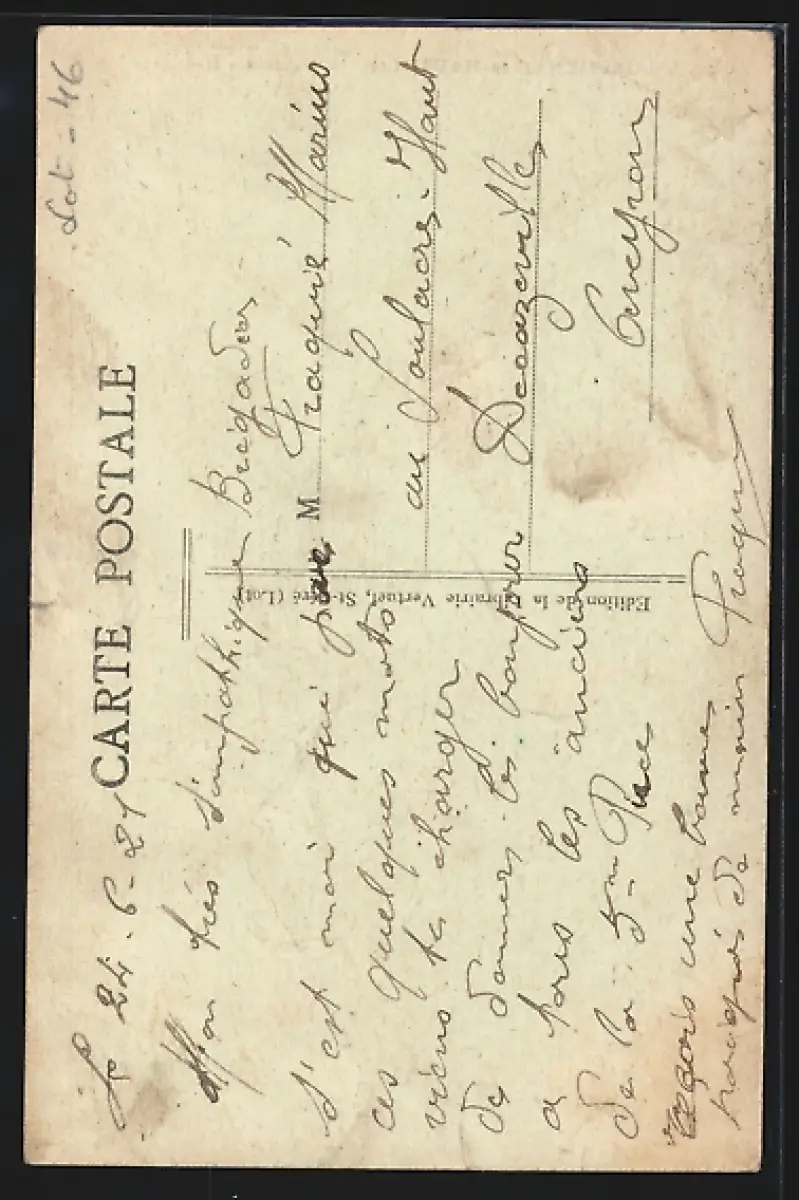 Lot - 46
CARTE POSTALE
Le 24-6-27
Mon très simpathique Brigadier
s'est moi qui par
ces quelques mots
viens te charger
de donner les bonjour
a tous les anciens
de la 5me Pièce
une bonne
poignée de main
M Marius
au Soulacre-Haut
Decazeville
Aveyron
Edition de la Librairie Vertuel, St-Céré (Lot)